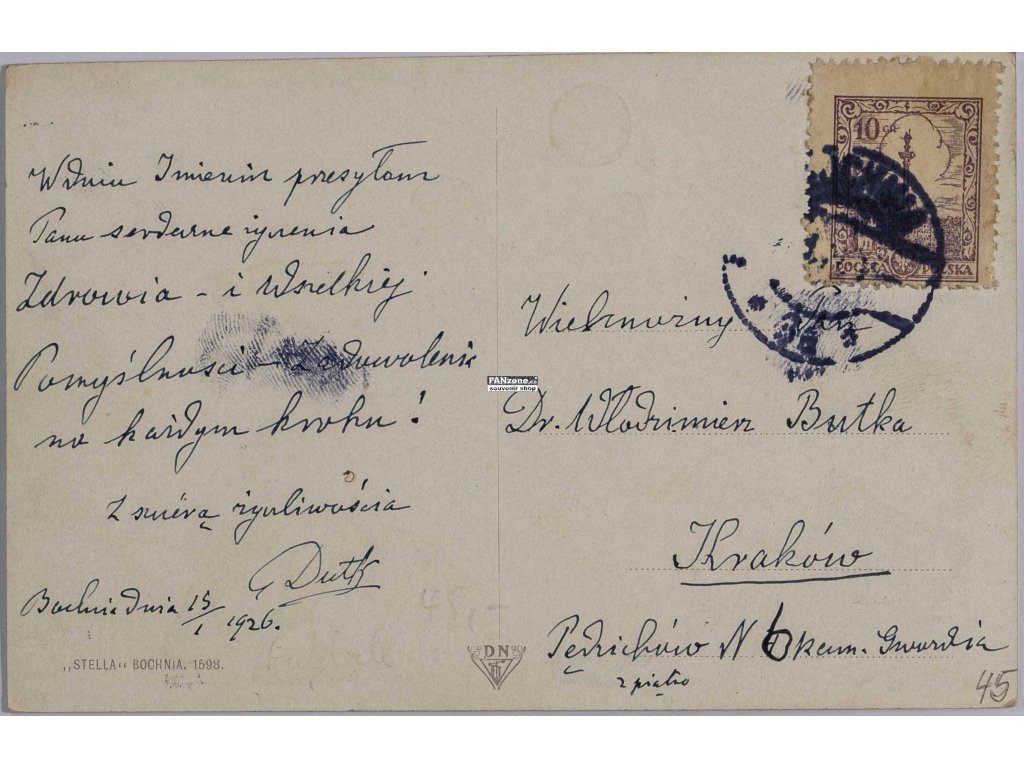 W dniu Imienin przesyłam
Panu serdeczne życzenia
Zdrowia – i Wszelkiej
Pomyślności – Zadowolenia
na każdym kroku!
Z szczerą życzliwością
Bochnia dnia 15/I 1926.
„STELLA" BOCHNIA. 1598.
DN
10 GR
POCZTA POLSKA
BOCHNIA
FANzone.
souvenir shop
Wielmożny Pan
Dr. Włodzimierz Butka
Kraków
Pędzichów N 6 kam. Gwardia
2 piątro
45